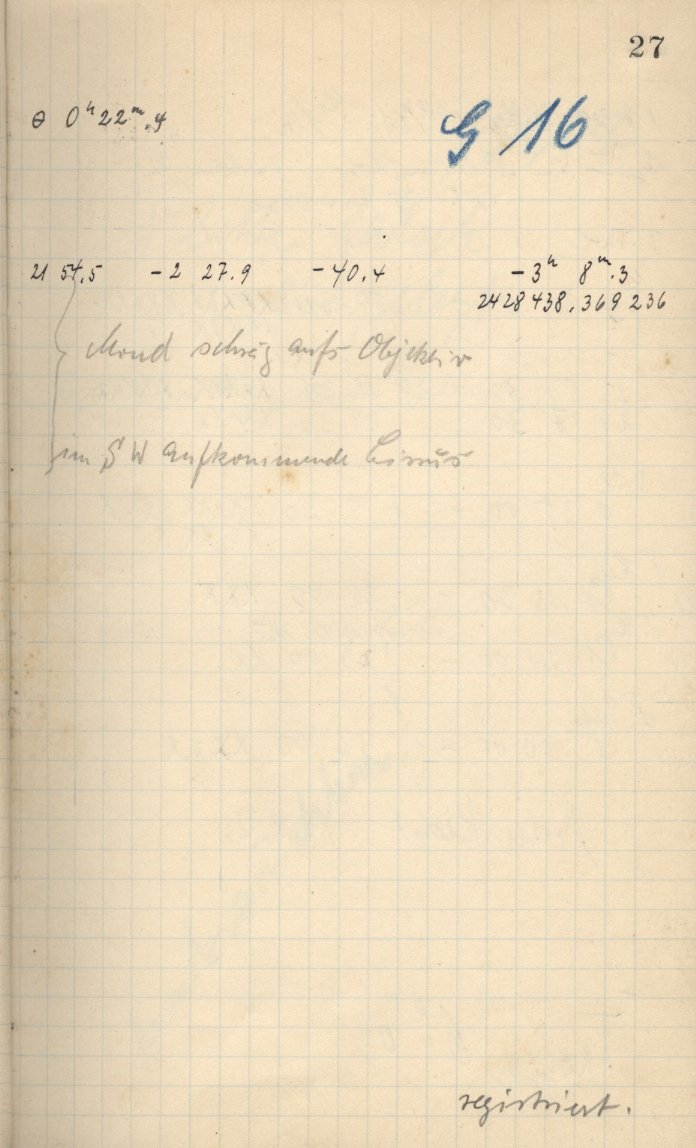 27
θ 0ʰ22ᵐ.4
G 16
21 54.5 -2 27.9 -40.4 -3ʰ 8ᵐ.3
2428438,369236
Mond schräg aufs Objektiv
im SW aufkommende Cirrus
registriert.